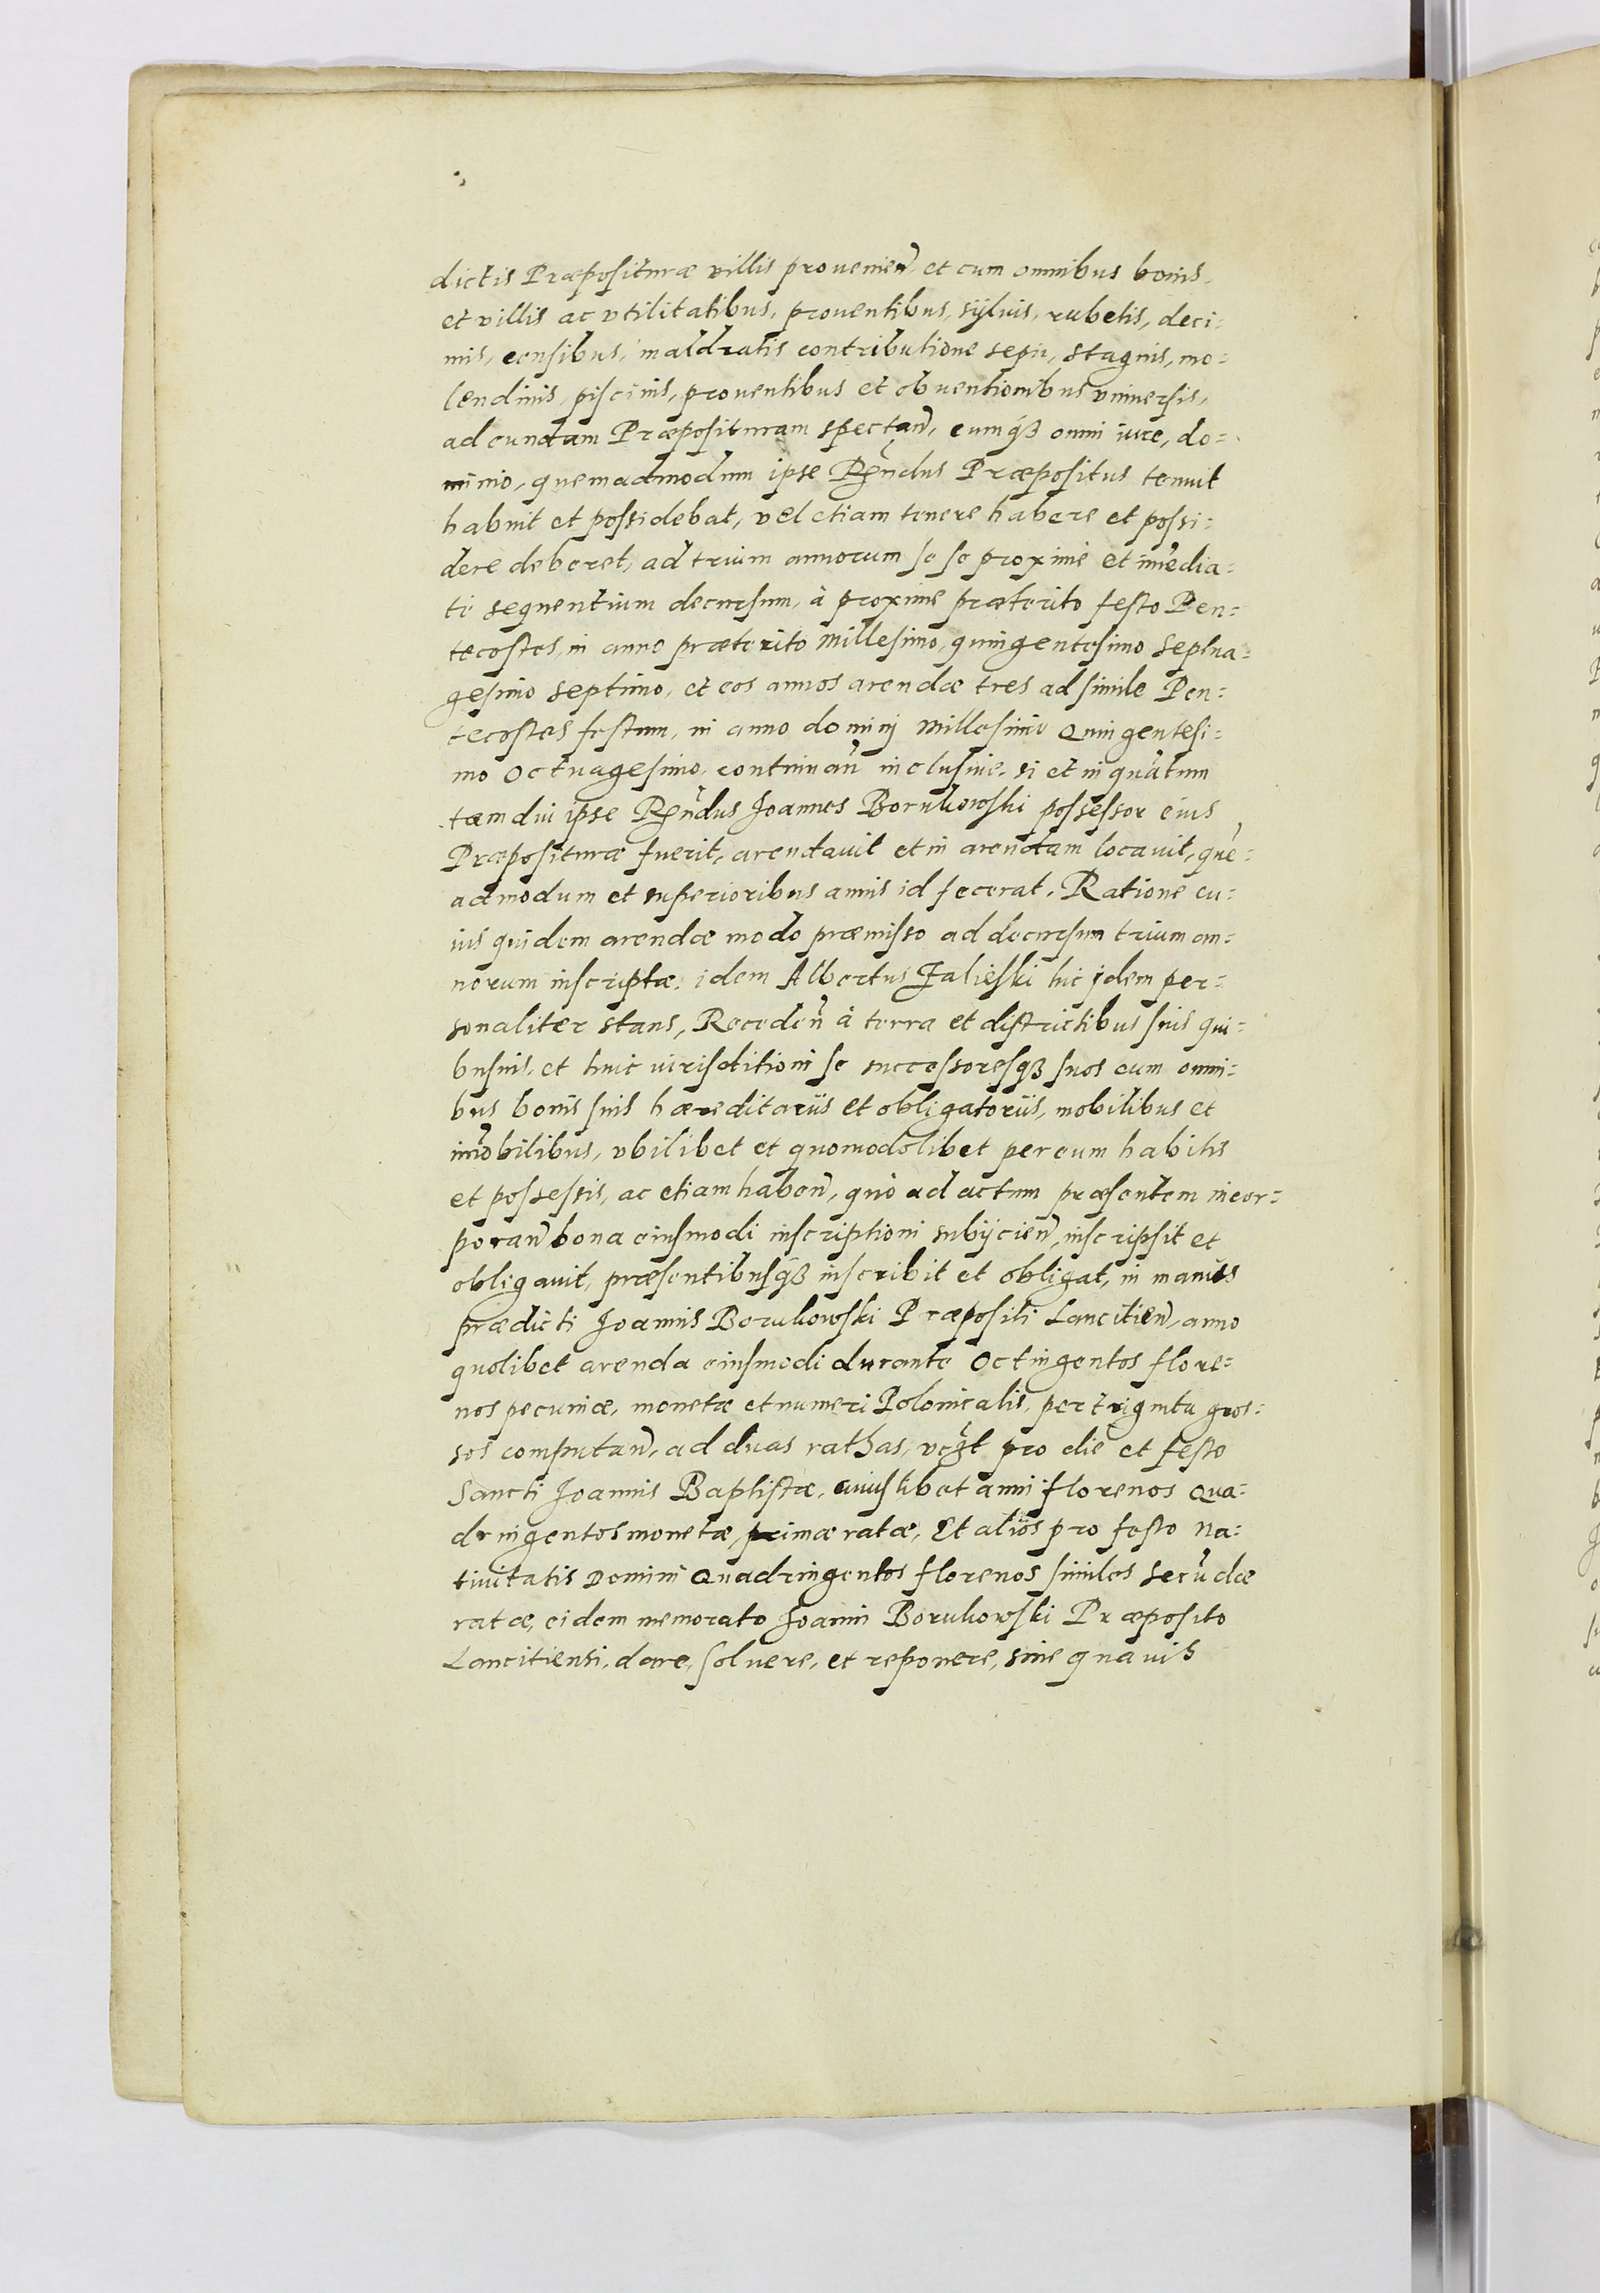 dictis Præposituræ villis prouenień et cum omnibus bonis,
et villis ac vtilitatibus, prouentibus, syluis, rubetis, deci=
mis, censibus, maldratis contributione sepii, stagnis, mo=
lendinis, piscinis, prouentibus et obuentionibus vniuersis,
ad eundam Præposituram spectań, cumq́ꝫ omni iure, do=
minio, quemadmodum ipse Rńdus Præpositus tenuit
habuit et possidebat, vel etiam tenere habere et possi=
dere deberet, ad trium annorum se se proxime et im̃edia=
te sequentium decursum, à proxime præterito festo Pen=
tecostes, in anno præterito Millesimo, quingentesimo septua=
gesimo septimo, et eos annos arendæ tres ad simile Pen=
tecostes festum, in anno dominj Millesimo Quingentesi=
mo Octuagesimo, continuań inclusiue, si et in quãtum
tamdiu ipse Rńdus Joannes Borukowski possessor eius
Præposituræ fuerit, arendauit et in arendam locauit, quẽ=
admodum et superioribus annis id fecerat. Ratione cu=
ius quidem arendæ modo præmisso ad decursum trium an=
norum inscriptæ, idem Albertus Jalieski hic jdem per=
sonaliter stans, Recedeń à terra et districtibus suis qui=
busuis, et huic iurisditioni se successoresq́ꝫ suos cum omni=
bus bonis suis hæreditariis et obligatoriis, mobilibus et
im̃obilibus, vbilibet et quomodolibet per eum habitis
et possessis, ac etiam habeń, quò ad actum præsentem incor=
porań bona einsmodi inscriptioni subijcień, inscripsit et
obligauit, præsentibusq́ꝫ inscribit et obligat, in manus
prædicti Joannis Borukowski Præpositi Lancitień, anno
quolibet arenda einsmodi durante Octingentos flore=
nos pecuniæ, monetæ et numeri Polonicalis, per triginta gros=
sos computań, ad duas rathas, vczl̃t pro die et festo
Sancti Joannis Baptistæ, cuiuslibet anni florenos Qua=
dringentos monetæ, primæ ratæ, Et aliós pro festo Na=
tiuitatis Domini Quadringentos florenos similes secũdæ
ratæ, eidem memorato Joanni Borukowski Præposito
Lancitiensi, dare, soluere, et reponere, sine quauis